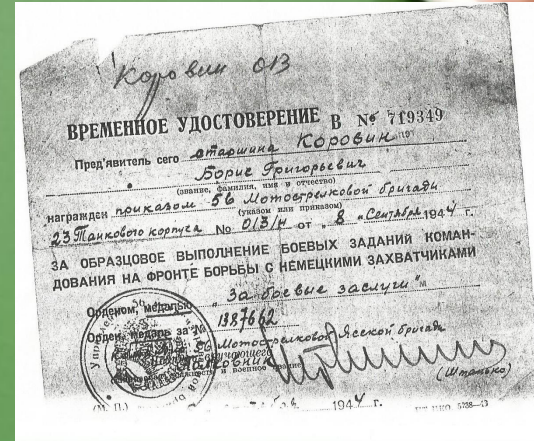 Коровин ОВ
ВРЕМЕННОЕ УДОСТОВЕРЕНИЕ В № 719349
Пред'явитель сего старшина Коровин
Борис Григорьевич
(звание, фамилия, имя и отчество)
награжден приказом 56 Мотострелковой бригады
(указом или приказом)
23 Танкового корпуса № 013/н от „8„ Сентября 1944 г.
ЗА ОБРАЗЦОВОЕ ВЫПОЛНЕНИЕ БОЕВЫХ ЗАДАНИЙ КОМАН-
ДОВАНИЯ НА ФРОНТЕ БОРЬБЫ С НЕМЕЦКИМИ ЗАХВАТЧИКАМИ
Орденом, медалью „За боевые заслуги"
Орден, медаль за № 1387662
56 Мотострелковой Ясской бригады
и военное звание
(Штанько)
(М. П.) 1944 г.